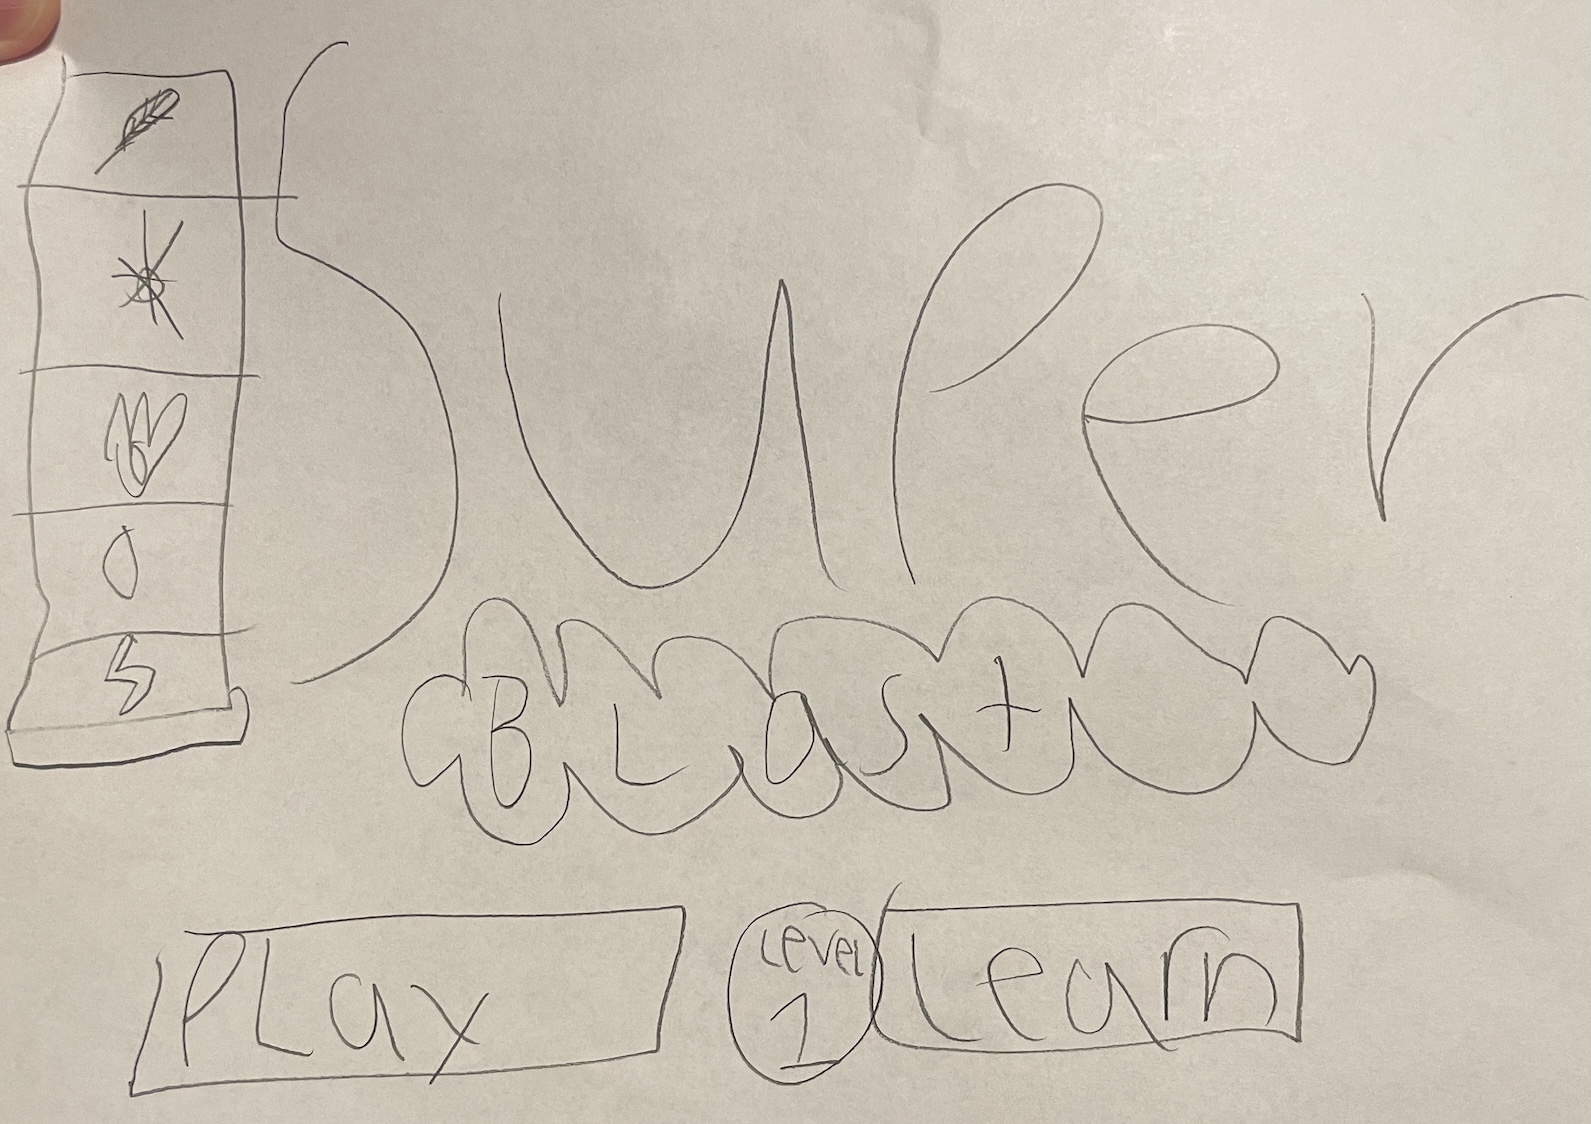 Super
BLast
PLay
Level
1
Learn